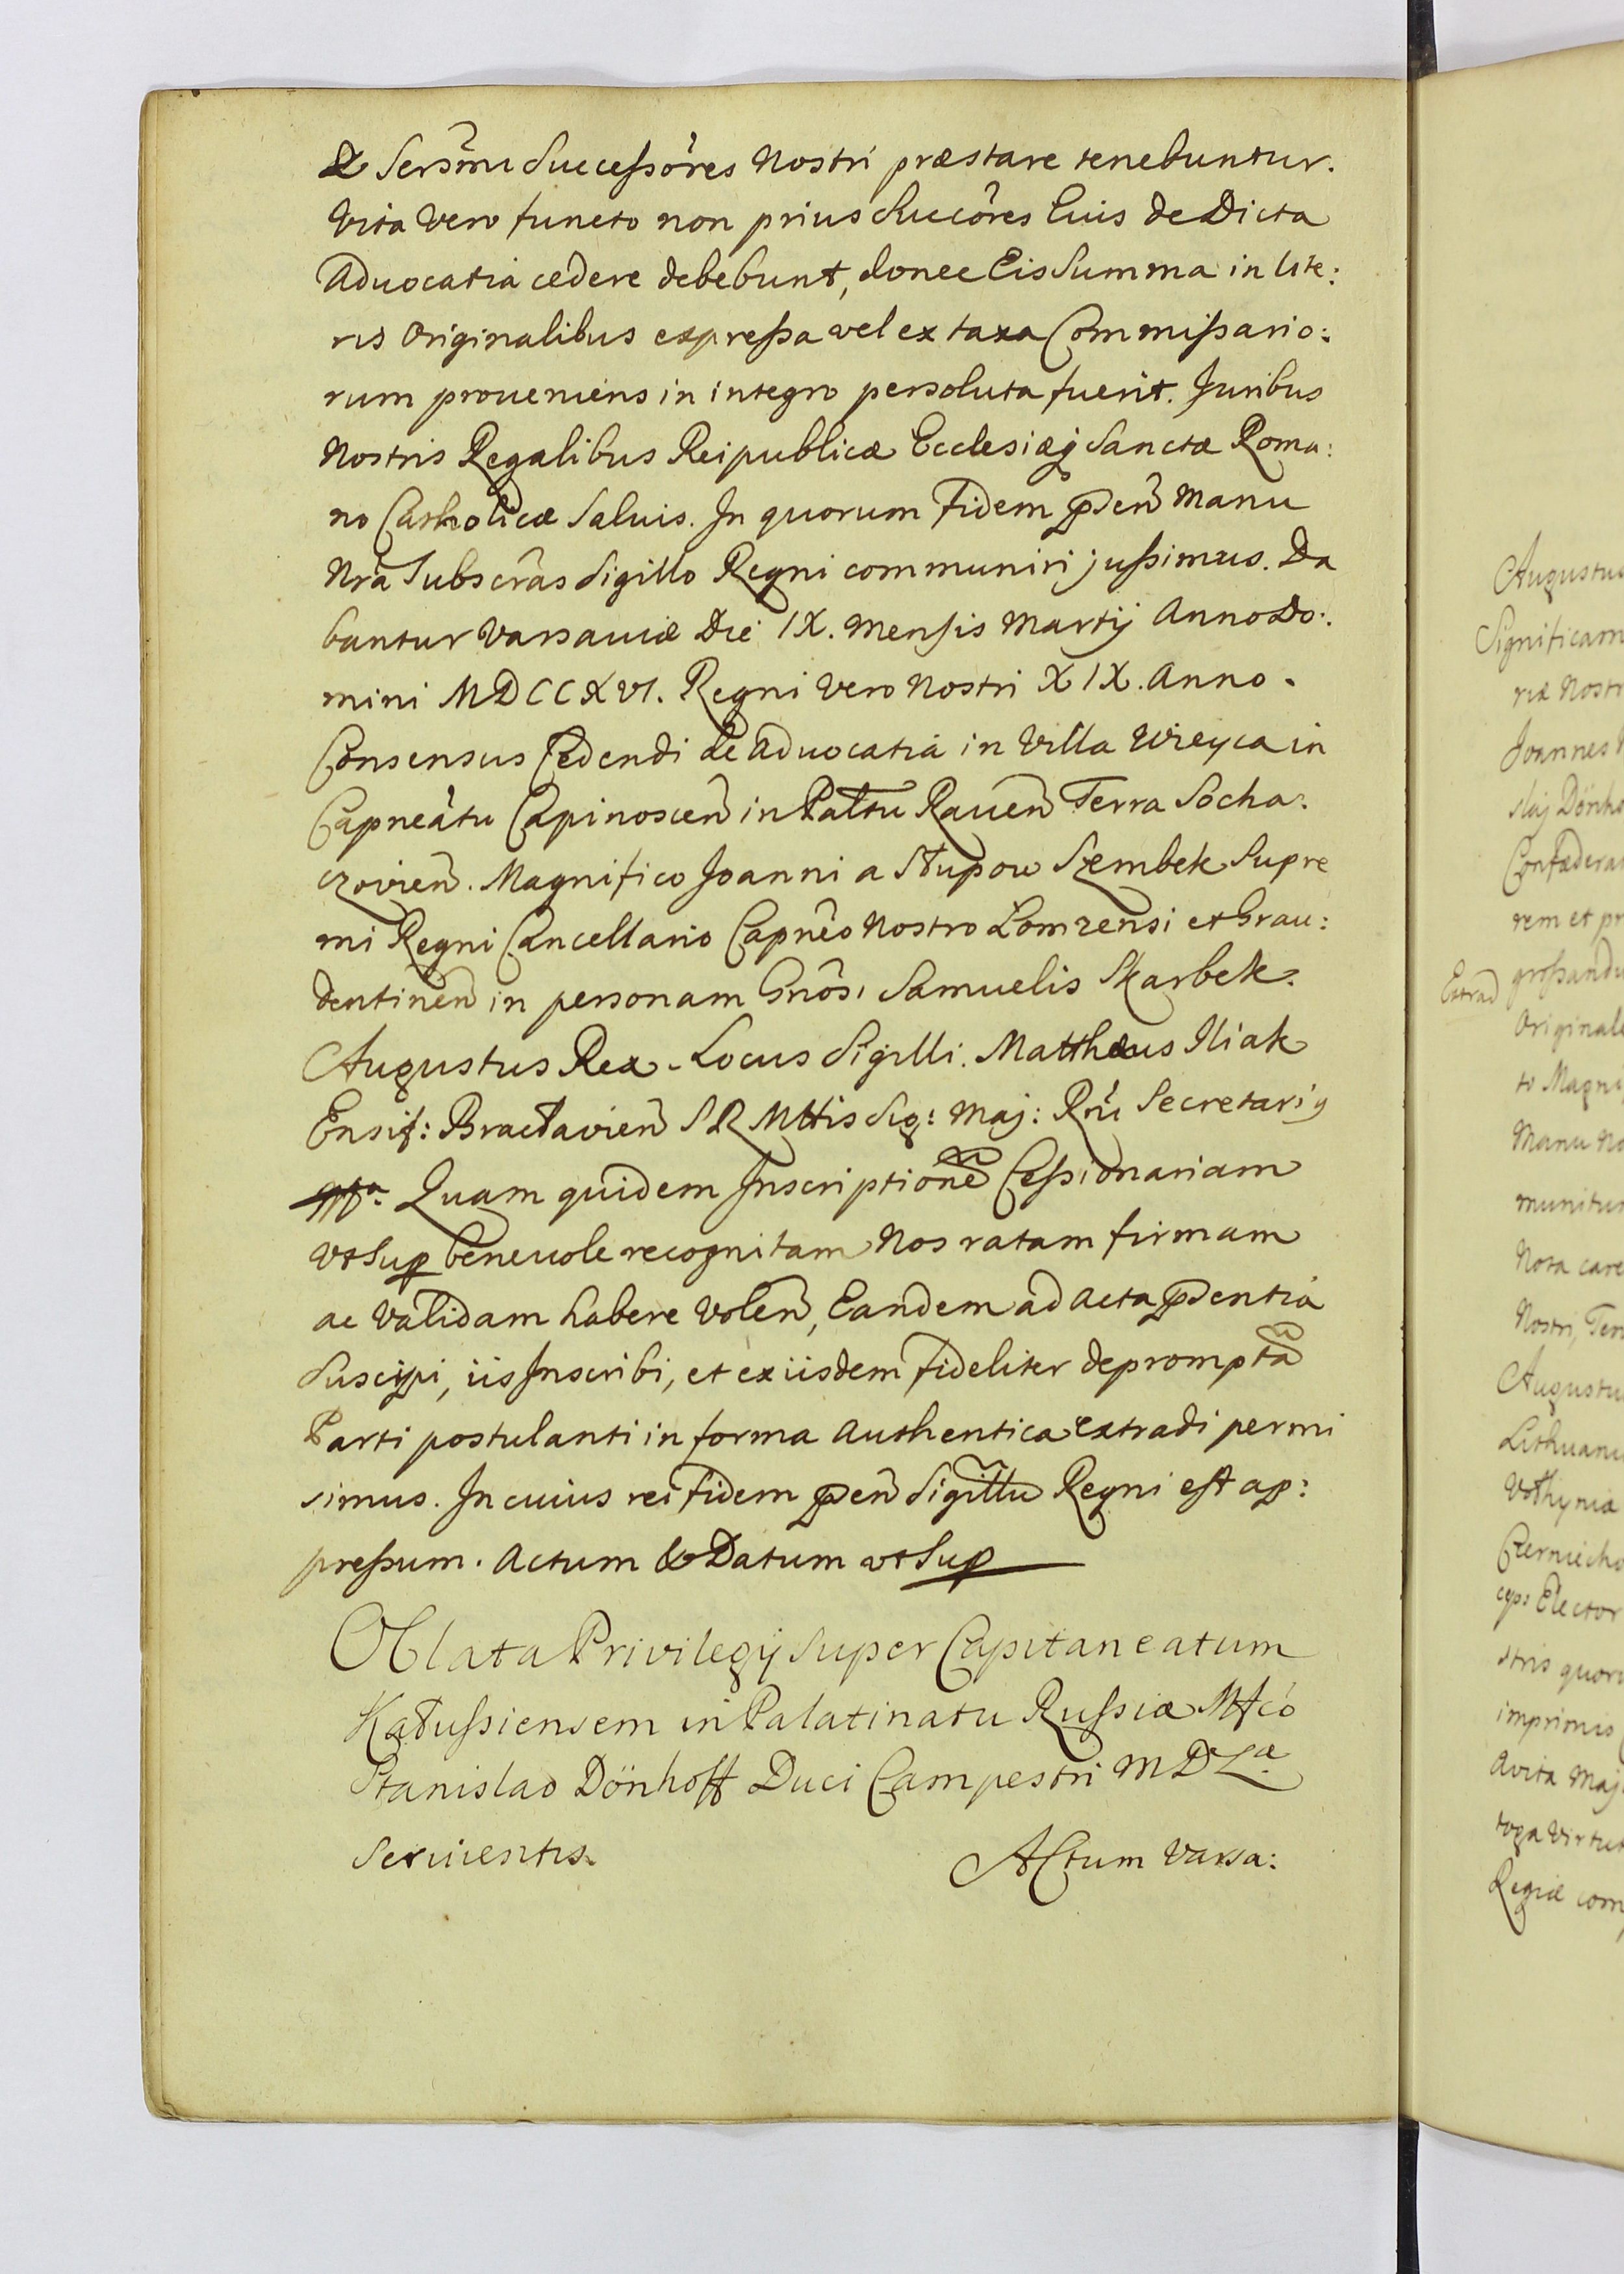 & Sersm̃i Successôres Nostri præstare tenebuntur.
Vita Vero functo non prius Succôres Eius de Dicta
Aduocatia cedere debebunt, donec Eis Summa in lite:
ris Originalibus expressa vel ex taxa Commissario:
rum proueniens in integro persoluta fuerit. Juribus
Nostris Regalibus Reipublicæ Ecclesiæq Sanctæ Roma:
no Catholicæ Saluis. In quorum Fidem pñden̄ Manu
Nrâ Subscrâs Sigillo Regni communiri jussimus. Da
bantur Varsaviæ Die IX. Mensis Martij Anno Do:
mini MDCCXVI. Regni Vero Nostri XIX. Anno.
Consensus Cedendi de Aduocatia in Villa Wieyca in
Capneâtu Capinoscen̄ in Paltu Rauen̄ Terra Socha:
czovien̄. Magnifico Joanni a Słupow Szembek Supre
mi Regni Cancellario Capnêo Nostro Łomzensi et Grau:
dentinen̄ in personam Gnôsi Samuelis Skarbek.
Augustus Rex. Locus Sigilli. Matthæus Iliak
Ensif: Bracłavien̄ S R Mttis Sig: Maj: Rñi Secretariq
Quam quidem Inscriptionē Cessionariam
Vt Sup beneuole recognitam Nos ratam firmam
ac Validam habere Volen̄, Eandem ad Acta pñdentia
Suscipi, iis Inscribi, et ex iisdem fideliter depromptā
Parti postulanti in forma Authentica extradi permi
simus. In cuius rei Fidem pñden̄ Sigillũ Regni est ap:
pressum. Actum & Datum vt Sup
Oblata Privilegij Super Capitaneatum
Kałussiensem in Palatinatu Russiæ Mfco
Stanislao Dönhoff Duci Campestri M D Lᵃᵉ
Seruientis.
Actum Varsa:
Augustus
Significam
riæ Nostr
Joannes
Confædera
rem et pr
Extrad grossandu
Originale
to Magni
Manu No
munitu
Nota care
Nostri, Ter
Augustu
Lithuani
Vołhyniæ
Czerniecho
ceps Elector
stris quoru
imprimis
Avita Maj
toga Virtut
Regiæ com